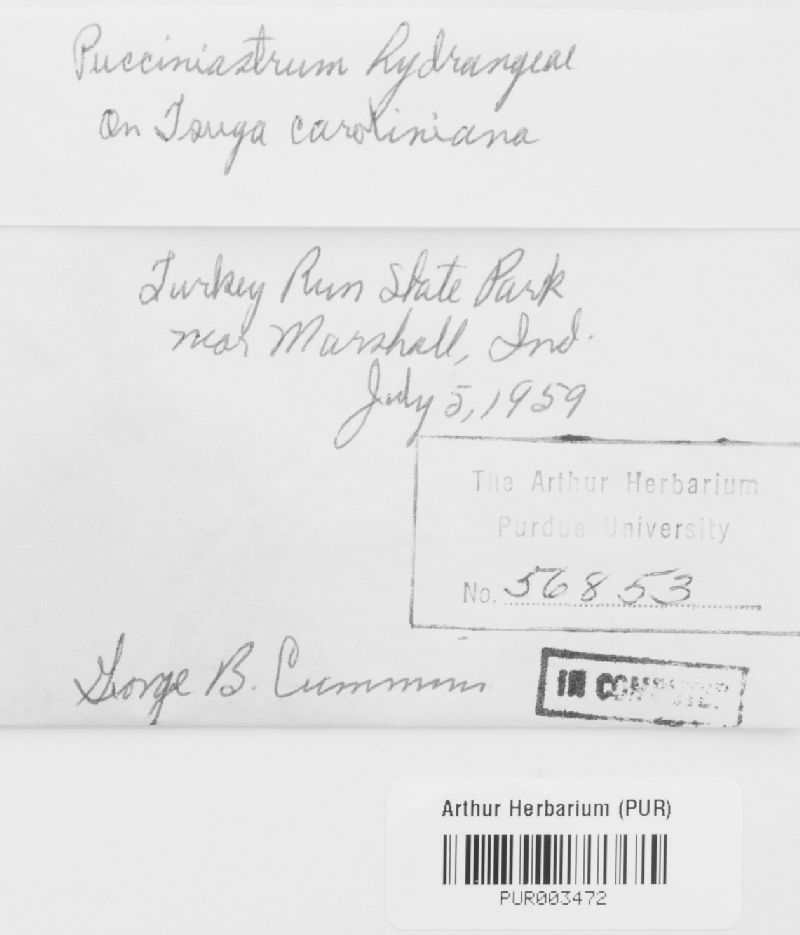 Pucciniastrum hydrangeae
on Tsuga caroliniana
Turkey Run State Park
near Marshall, Ind.
July 5, 1959
The Arthur Herbarium
Purdue University
No. 56853
George B. Cummins
IN COMPUTER
Arthur Herbarium (PUR)
PUR003472